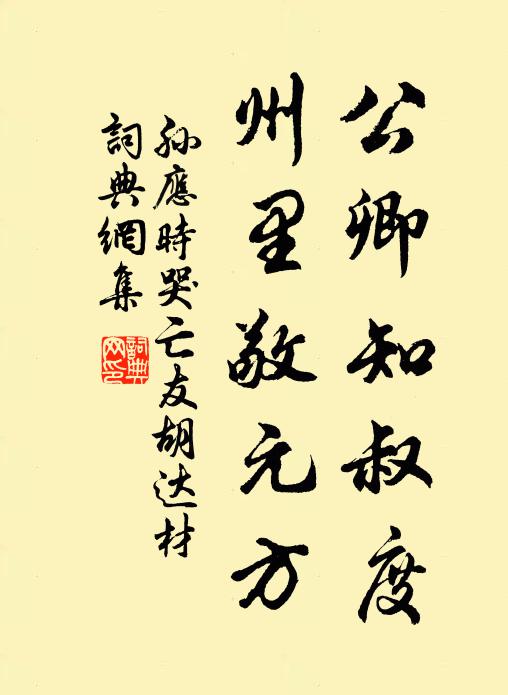 公卿知叔度
州里敬元方
孙應時哭亡友胡达材
詞典網集
詞典
网印